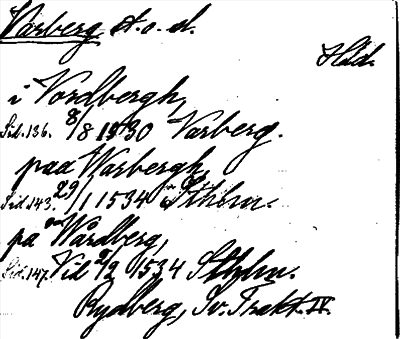 Varberg st. o. d.
Hld.
i Vordbergh,
Sid. 136. 8/8 1530 Varberg.
paa Warbergh,
Sid. 143. 29/1 1534 Sthlm.
på Wårdberg,
Sid. 147. Vid 2/2 1534 Sthlm.
Rydberg, Sv. Trakt. IV.